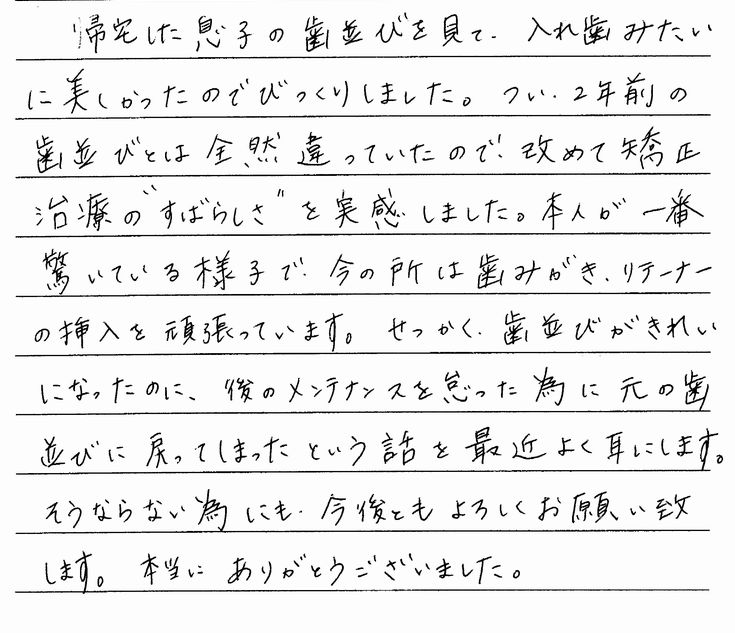 帰宅した息子の歯並びを見て、入れ歯みたい
に美しかったのでびっくりしました。つい、2年前の
歯並びとは全然違っていたので、改めて矯正
治療の"すばらしさ"を実感しました。本人が一番
驚いている様子で、今の所は歯みがき、リテーナー
の挿入を頑張っています。せっかく、歯並びがきれい
になったのに、後のメンテナンスを怠った為に元の歯
並びに戻ってしまったという話を最近よく耳にします。
そうならない為にも、今後ともよろしくお願い致
します。本当にありがとうございました。